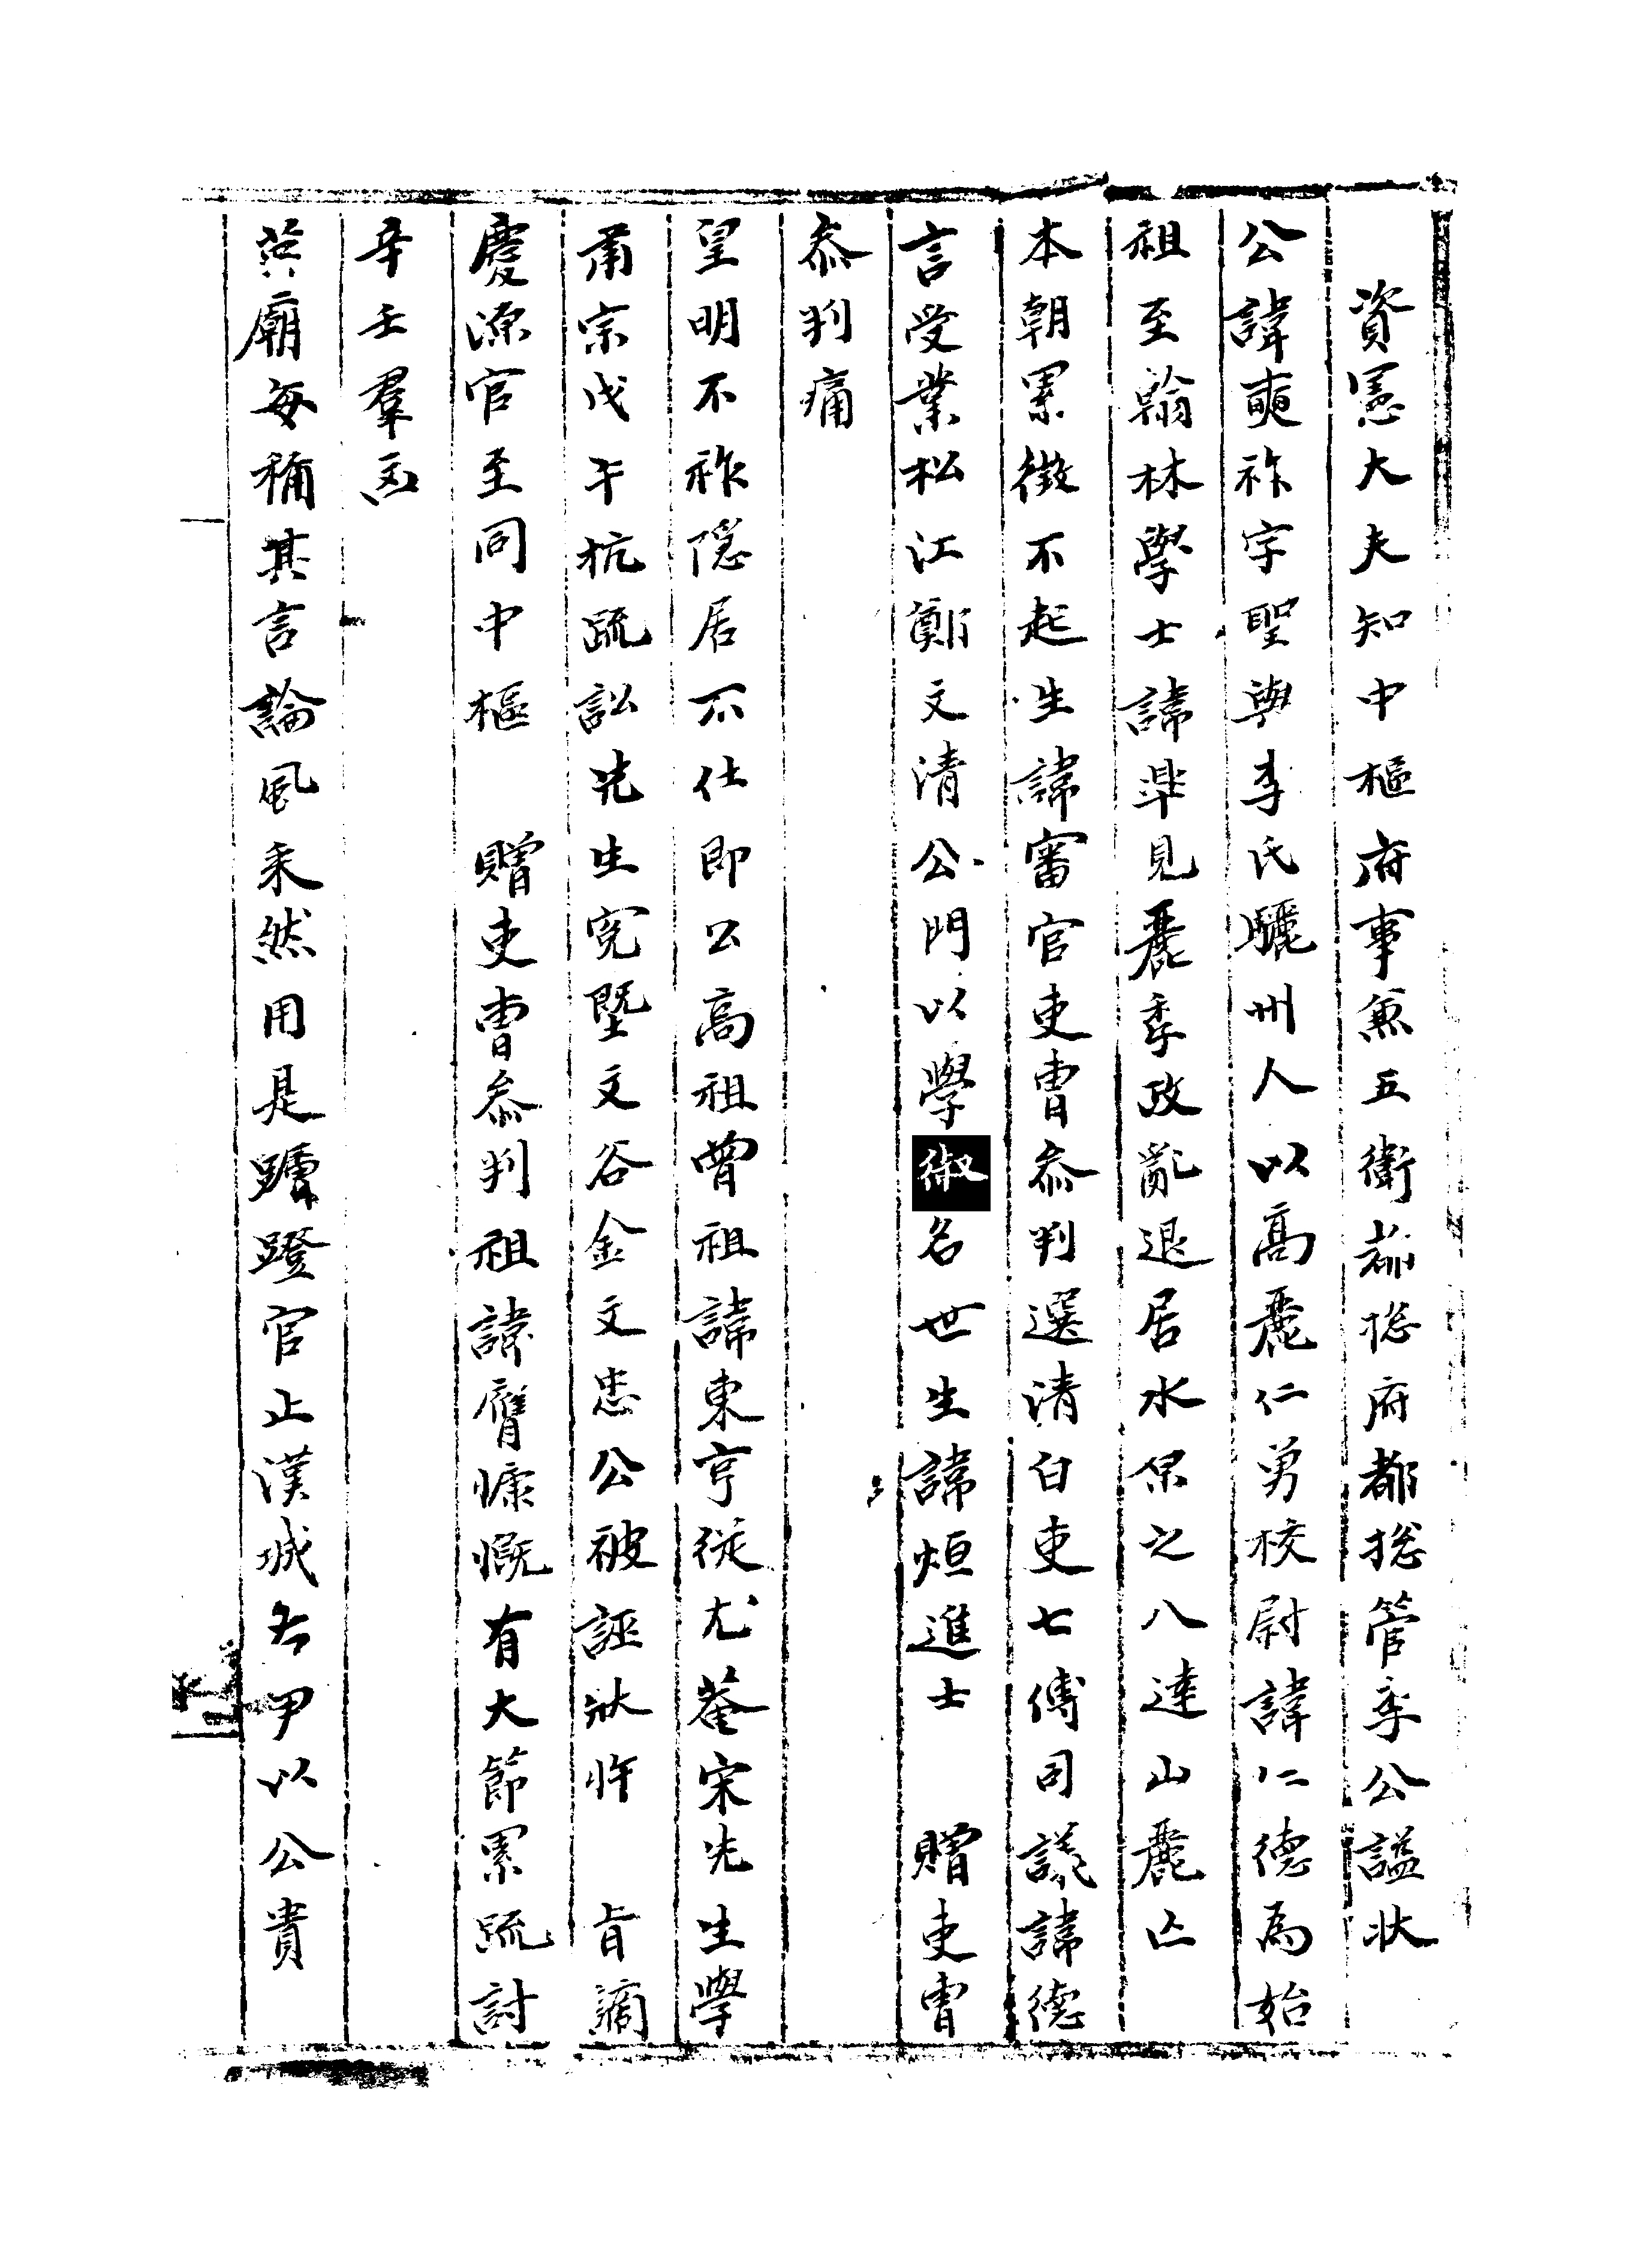 資憲大夫知中樞府事兼五衛都摠府都摠管李公謚狀
公諱奭祚字聖與李氏驪州人以高麗仁勇校尉諱仁德爲始
祖至翰林學士諱臯見麗季政亂退居水原之八達山麗亡
本朝累徵不起生諱審官吏曹叅判選清白吏七傳司議諱德
言受業松江鄭文清公門以學名世生諱烜進士 贈吏曹
叅判痛
皇明不祚隱居不仕即公高祖曾祖諱東亨從尤菴宋先生學
肅宗戊午抗疏訟先生寃曁文谷金文忠公被誣狀忤 旨謫
慶源官至同中樞 贈吏曹叅判祖諱膺慷慨有大節累疏討
辛壬羣凶
英廟每稱其言論風采然用是蹬官止漢城右尹以公貴